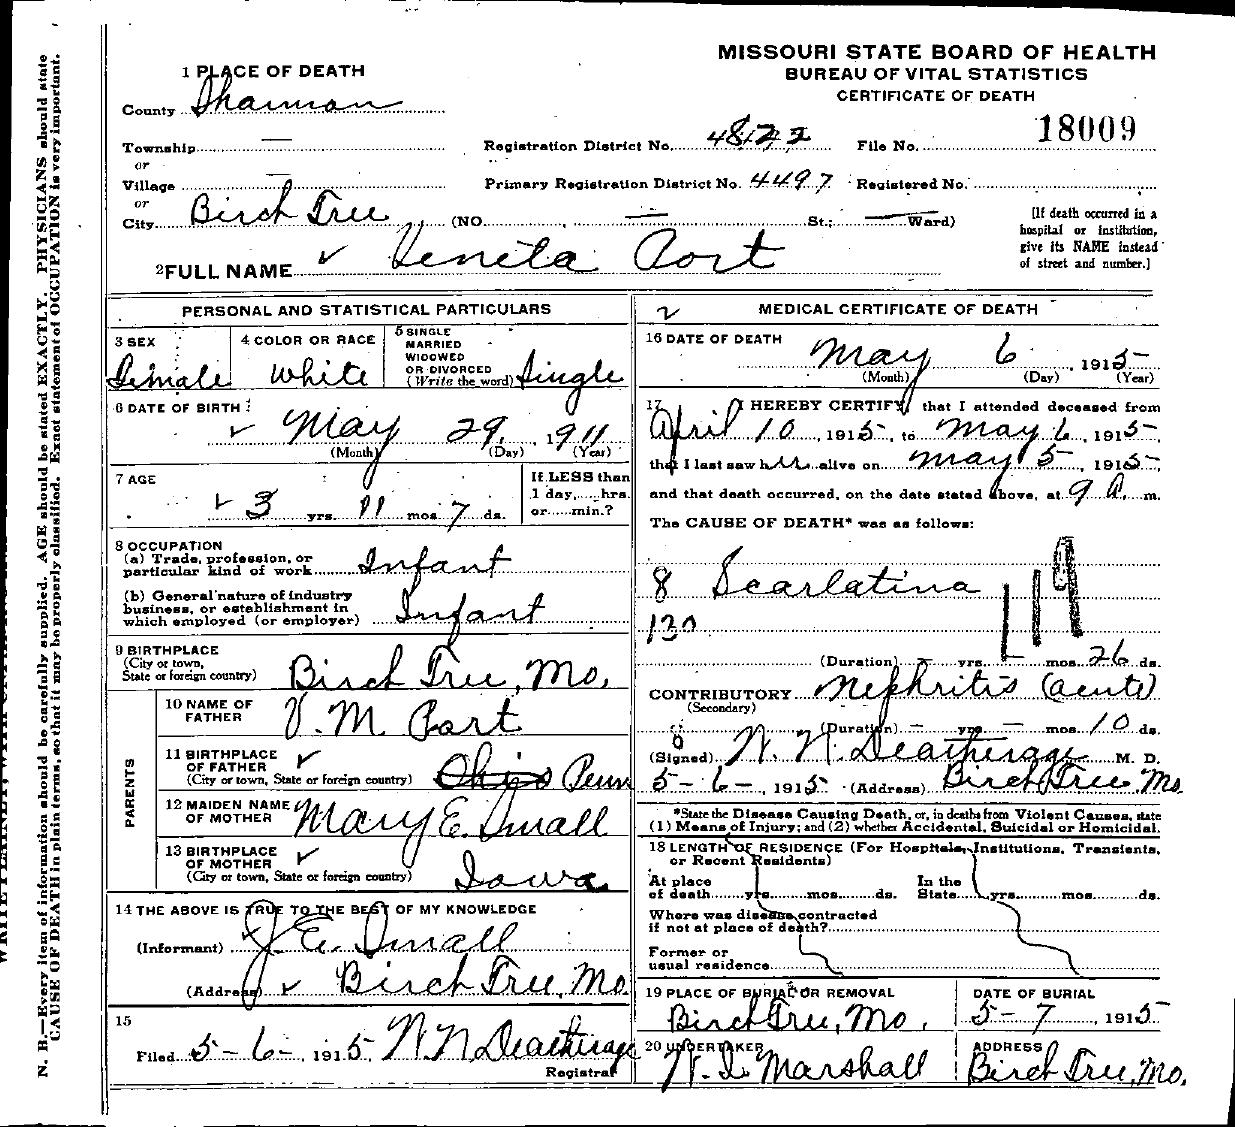 MISSOURI STATE BOARD OF HEALTH
BUREAU OF VITAL STATISTICS
CERTIFICATE OF DEATH
1 PLACE OF DEATH
County Shannon
Township —
or
Village —
or
City Birch Tree (NO. — St.; — Ward)
Registration District No. 4822 File No. 18009
Primary Registration District No. 4497 Registered No.
[If death occurred in a
hospital or institution,
give its NAME instead
of street and number.]
2 FULL NAME Venita Port
PERSONAL AND STATISTICAL PARTICULARS
3 SEX
Female
4 COLOR OR RACE
White
5 SINGLE
MARRIED
WIDOWED
OR DIVORCED
(Write the word) Single
6 DATE OF BIRTH
May 29, 1911
(Month) (Day) (Year)
7 AGE
3 yrs. 11 mos. 7 ds.
If LESS than
1 day,......hrs.
or......min.?
8 OCCUPATION
(a) Trade, profession, or
particular kind of work Infant
(b) General nature of industry
business, or establishment in
which employed (or employer) Infant
9 BIRTHPLACE
(City or town,
State or foreign country) Birch Tree, Mo.
PARENTS
10 NAME OF
FATHER V. M. Port
11 BIRTHPLACE
OF FATHER
(City or town, State or foreign country) Ohio Penn
12 MAIDEN NAME
OF MOTHER Mary E. Small
13 BIRTHPLACE
OF MOTHER
(City or town, State or foreign country) Iowa
14 THE ABOVE IS TRUE TO THE BEST OF MY KNOWLEDGE
(Informant) J. E. Small
(Address) Birch Tree, Mo.
15
Filed 5-6-, 1915, N. N. Deatherage
Registrar
2 MEDICAL CERTIFICATE OF DEATH
16 DATE OF DEATH
May 6, 1915
(Month) (Day) (Year)
17 I HEREBY CERTIFY, that I attended deceased from
April 10, 1915, to May 6, 1915,
that I last saw her alive on May 5, 1915,
and that death occurred, on the date stated above, at 9 A. m.
The CAUSE OF DEATH* was as follows:
8 Scarlatina 119
130
(Duration) — yrs. — mos. 26 ds.
CONTRIBUTORY Nephritis (acute)
(Secondary)
(Duration) — yrs. — mos. 10 ds.
(Signed) N. N. Deatherage M. D.
5-6-, 1915 (Address) Birch Tree Mo.
*State the Disease Causing Death, or, in deaths from Violent Causes, state
(1) Means of Injury; and (2) whether Accidental, Suicidal or Homicidal.
18 LENGTH OF RESIDENCE (For Hospitals, Institutions, Transients,
or Recent Residents)
At place In the
of death......yrs......mos......ds. State......yrs......mos......ds.
Where was disease contracted
if not at place of death?
Former or
usual residence
19 PLACE OF BURIAL OR REMOVAL
Birch Tree, Mo.
DATE OF BURIAL
5-7, 1915
20 UNDERTAKER
Marshall
ADDRESS
Birch Tree, Mo.
N. B.—Every item of information should be carefully supplied. AGE should be stated EXACTLY. PHYSICIANS should state
CAUSE OF DEATH in plain terms, so that it may be properly classified. Exact statement of OCCUPATION is very important.